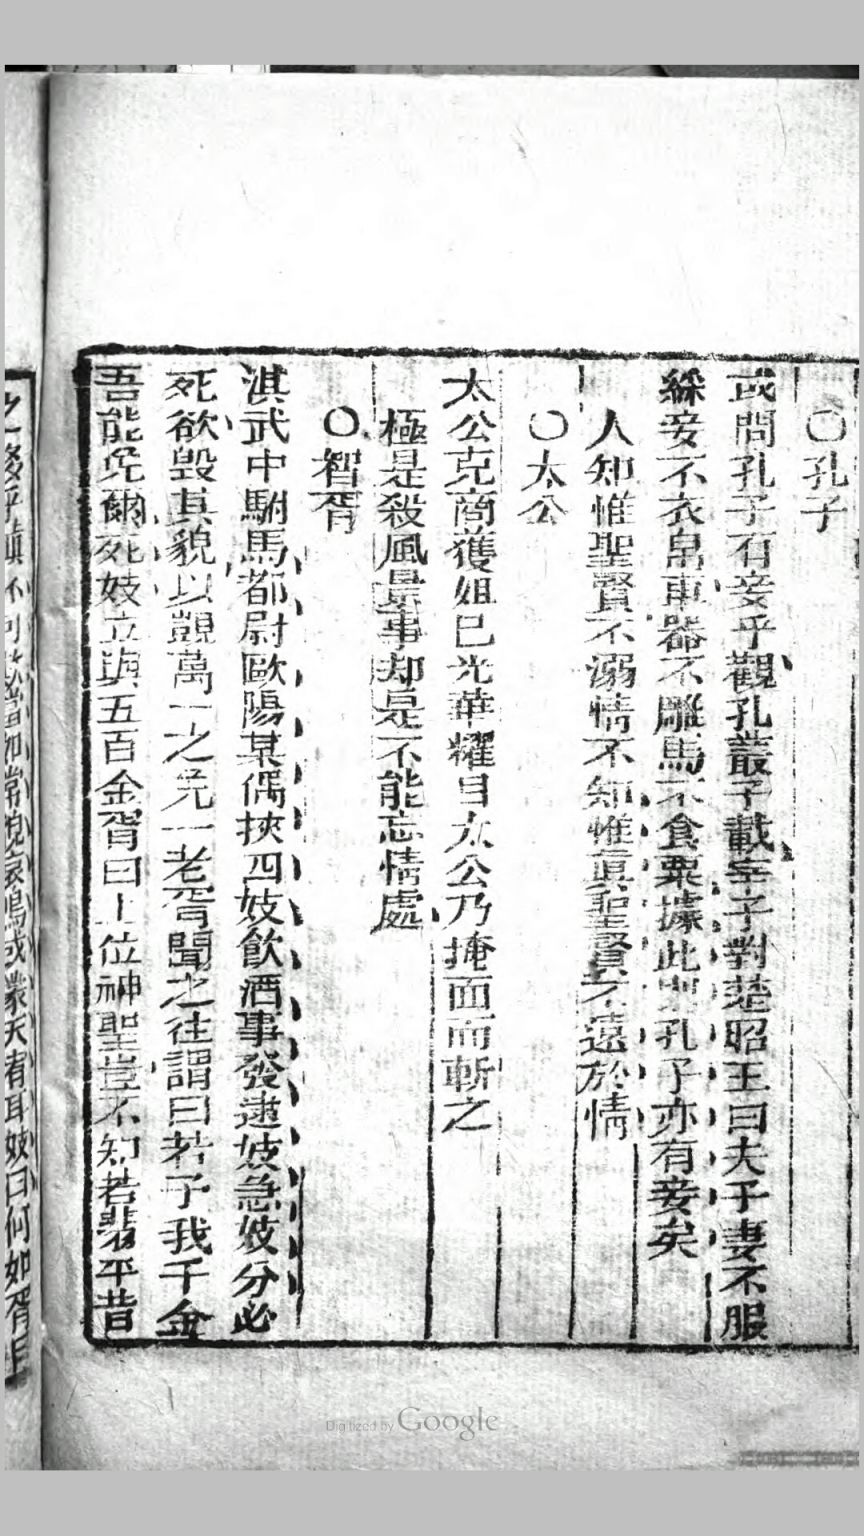 ○孔子
或問孔子有妾乎觀孔叢子載宰子對楚昭王曰夫子妻不服
綵妾不衣帛車器不雕馬不食粟據此則孔子亦有妾矣
人知惟聖賢不溺情不知惟眞聖賢不遠於情
○太公
太公克商獲妲己光華耀目太公乃掩面而斬之
極是殺風景事却是不能忘情處
○智胥
淇武中駙馬都尉歐陽某偶挾四妓飲酒事發逮妓急妓分必
死欲毀其貌以覬萬一之免一老胥聞之往謂曰若予我千金
吾能免爾死妓立與五百金胥曰上位神聖豈不知若輩平昔
曰何如胥
Digitized by Google